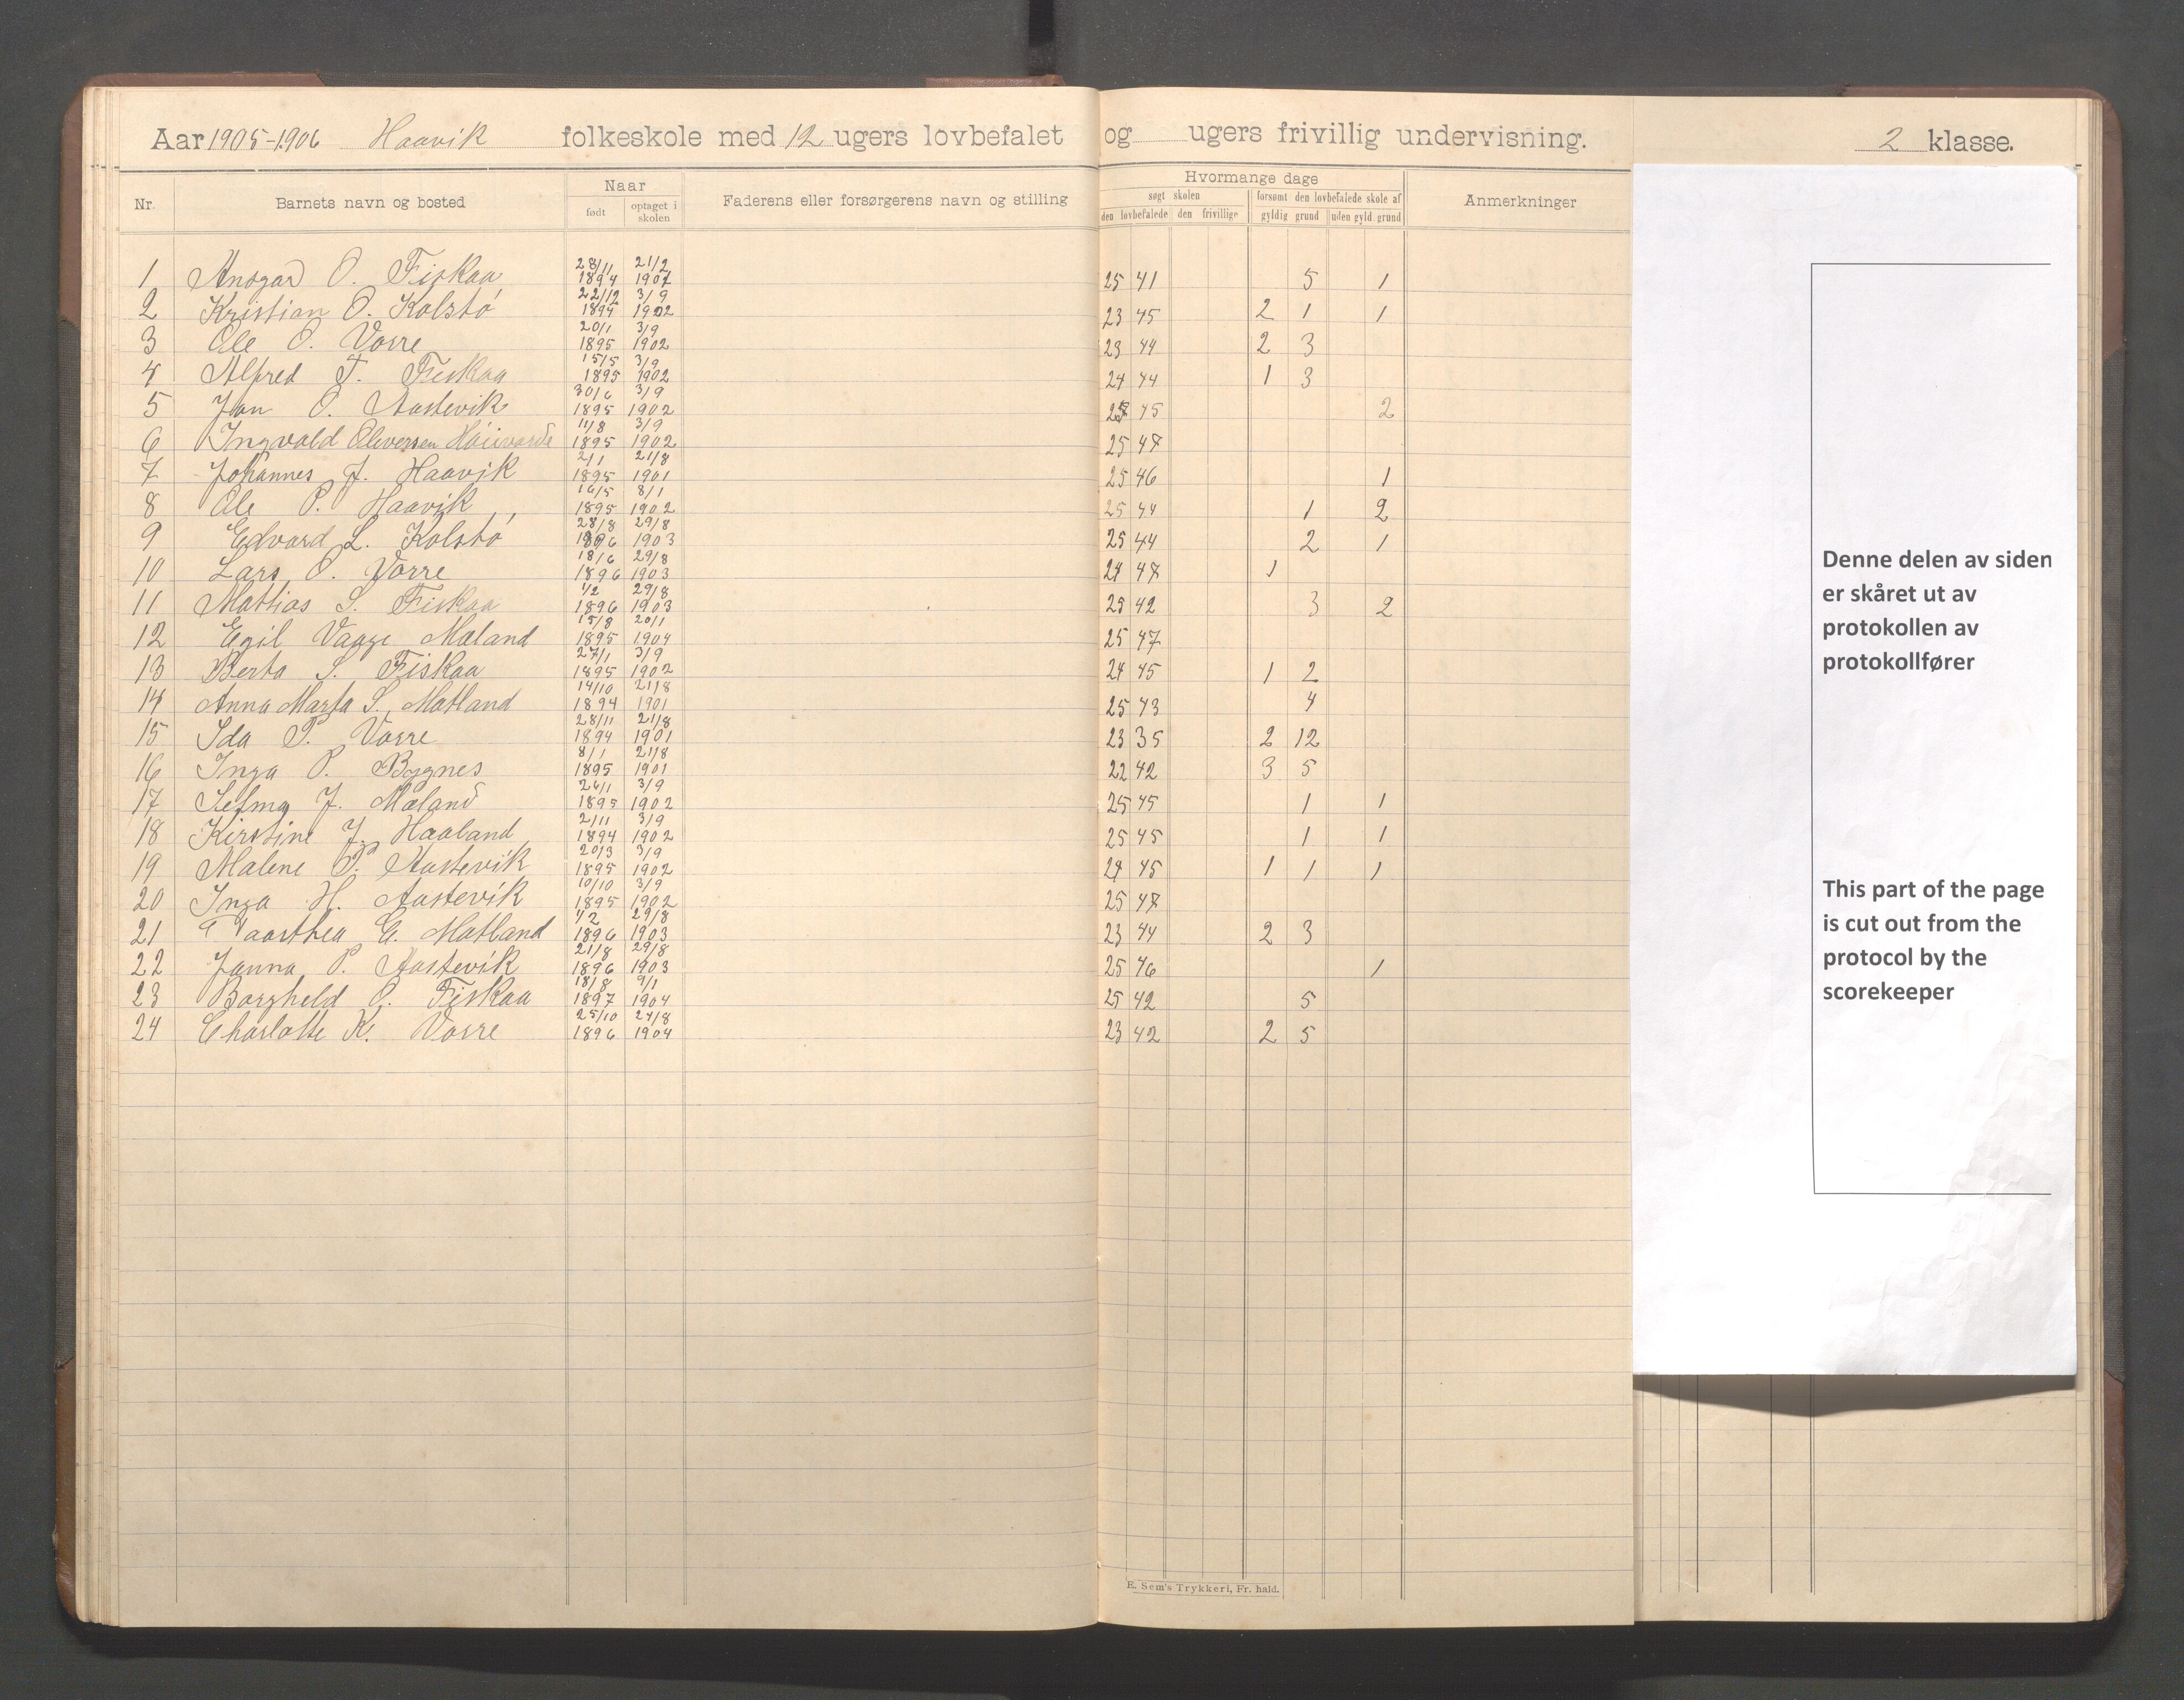 Aar 1905-1906 Haavik folkeskole med 12 ugers lovbefalet og ugers frivillig undervisning. 2 klasse.
Nr. Barnets navn og bosted Naar født optaget i skolen Faderens eller forsørgerens navn og stilling Hvormange dage søgt skolen den lovbefalede den frivillige forsømt den lovbefalede skole af gyldig grund uden gyld grund Anmerkninger
1 Ansgar O. Fiskaa 28/11 1894 21/2 1907 25 41 5 1
2 Kristian O. Kolstø 22/12 1894 3/9 1902 23 45 2 1 1
3 Ole O. Vorre 20/1 1895 3/9 1902 23 44 2 3
4 Alfred T. Fiskaa 15/5 1895 3/9 1902 24 44 1 3
5 Jan O. Aastevik 30/6 1895 3/9 1902 25 45 2
6 Ingvald Eleversen 11/8 1895 3/9 1902 25 47
7 Johannes J. Haavik 2/1 1895 21/8 1901 25 46 1
8 Ole P. Haavik 16/5 1895 8/1 1902 25 44 1 2
9 Edvard L. Kolstø 28/8 1896 29/8 1903 25 44 2 1
10 Lars O. Vorre 18/6 1896 29/8 1903 24 47 1
11 Mattias S. Fiskaa 1/2 1896 29/8 1903 25 42 3 2
12 Egil Vaage Mæland 15/8 1895 20/1 1904 25 47
13 Berta S. Fiskaa 27/1 1895 3/9 1902 24 45 1 2
14 Anna Marta S. Matland 14/10 1894 21/8 1901 25 43 4
15 Ida P. Vorre 28/11 1894 21/8 1901 23 35 2 12
16 Inga P. Bygnes 8/1 1895 21/8 1901 22 42 3 5
17 Selma J. Mæland 26/1 1895 3/9 1902 25 45 1 1
18 Kirstine J. Haaland 2/11 1894 3/9 1902 25 45 1 1
19 Malene P. Aastevik 20/3 1895 3/9 1902 24 45 1 1 1
20 Inga H. Aastevik 10/10 1895 3/9 1902 25 47
21 Taarthea G. Matland 1/2 1896 29/8 1903 23 44 2 3
22 Janna P. Aastevik 21/8 1896 29/8 1903 25 46 1
23 Borghild O. Fiskaa 18/8 1897 9/1 1904 25 42 5
24 Charlotte K. Vorre 25/10 1896 24/8 1904 23 42 2 5
E. Sem's Trykkeri, Fr. hald.
Denne delen av siden
er skåret ut av
protokollen av
protokollfører
This part of the page
is cut out from the
protocol by the
scorekeeper